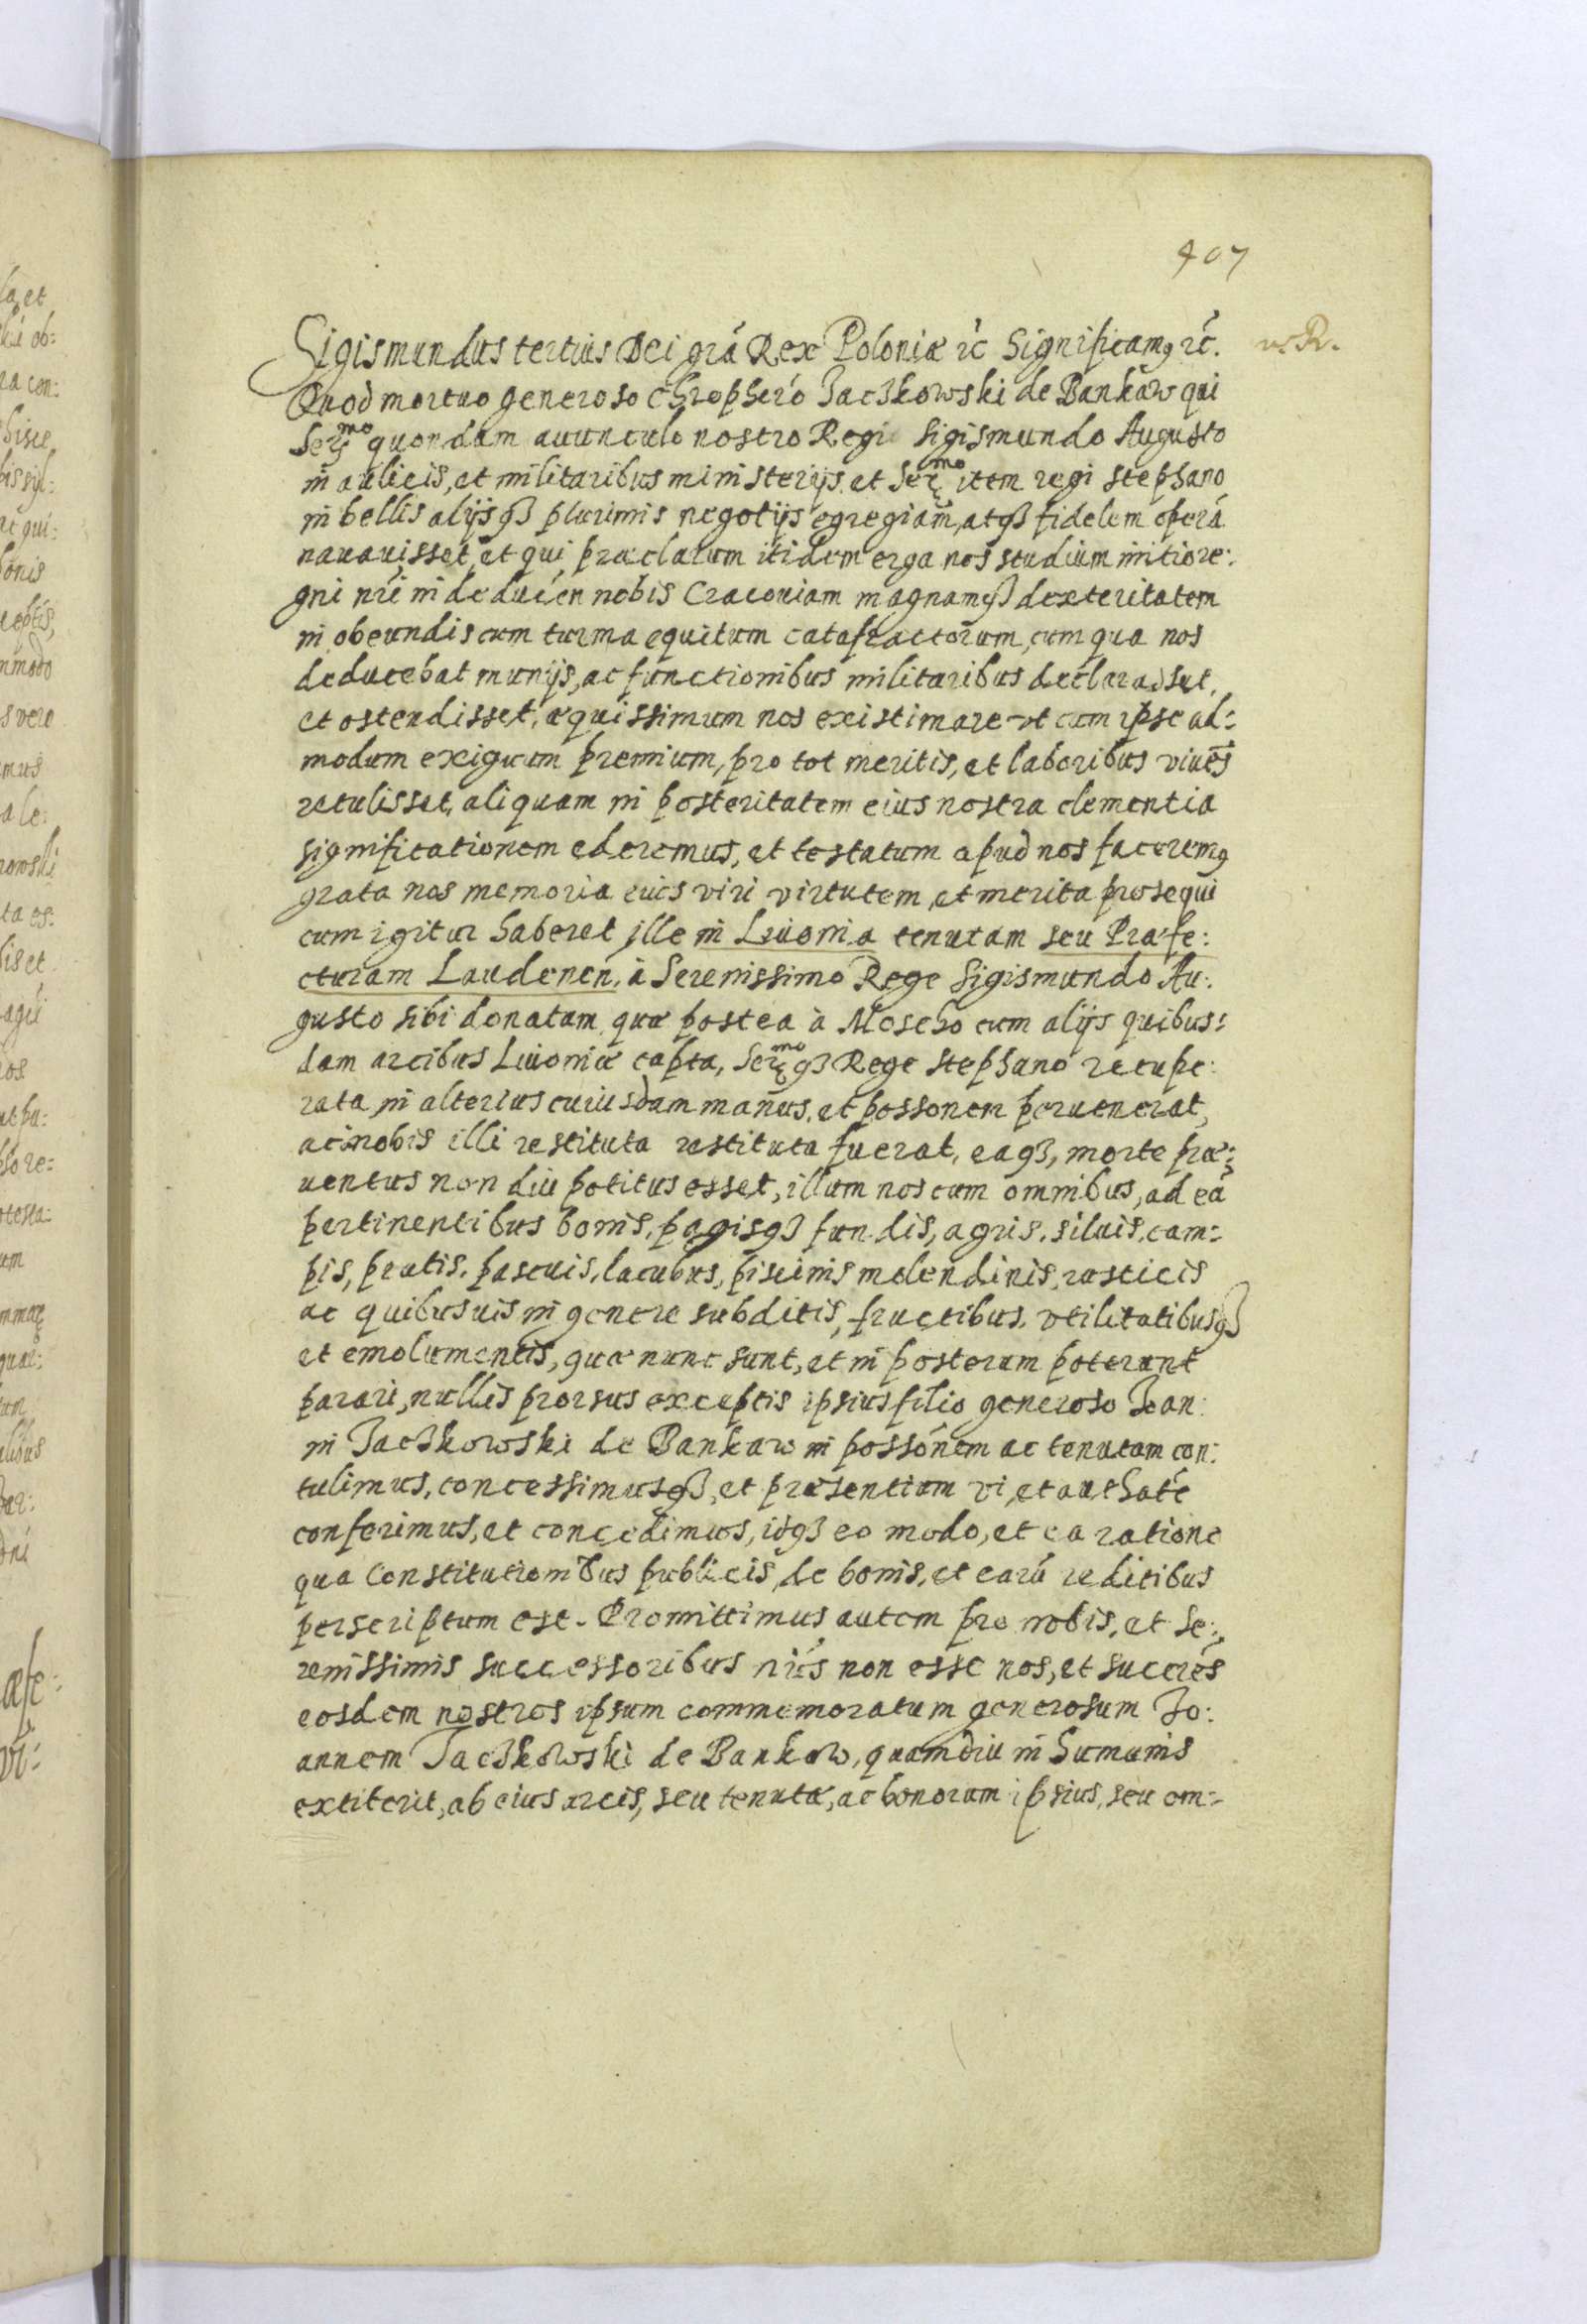 407
Sigismundus tertius Dei grã Rex Poloniæ ꝛc̃ Significamꝯ ꝛc̃. v. R.
Quod mortuo generoso Chrophero Jaczkowski de Bankaw qui
Serᵐᵒ quondam auunculo nostro Regi Sigismundo Augusto
in aulicis, et militaribus ministerijs, et Serᵐᵒ item regi Stephano
in bellis alijsqȝ plurimis negotijs egregiam, atqȝ fidelem operã
nauauisset, et qui præclarum itidem erga nos studium initio re:
gni nr̃i in deducen nobis Cracouiam magnamqȝ dexteritatem
in obeundis cum turma equitum catafractorum, cum qua nos
deducebat munijs, ac functionibus militaribus declarasset,
et ostendisset, æquissimum nos existimare vt cum ipse ad:
modum exiguum premium, pro tot meritis, et laboribus viuẽs
retulisset, aliquam in posteritatem eius nostra clementia
significationem ederemus, et testatum apud nos faceremꝯ
grata nos memoria euis viri virtutem, et merita prosequi
cum igitur haberet jlle in Liuonia tenutam seu Præfe:
cturam Laudenen. à Serenissimo Rege Sigismundo Au:
gusto sibi donatam, quæ postea à Moscho cum alijs quibus:
dam arcibus Liuoniæ capta, Serᵐᵒqȝ Rege Stephano recupe:
rata in alterius cuiusdam manus, et possonem peruenerat,
ac nobis illi restituta restituta fuerat, eaqȝ, morte præ:
uentus non diu potitus esset, illum nos cum omnibus, ad eã
pertinentibus bonis, pagisqȝ fundis, agris, siluis, cam:
pis, pratis, pascuis, lacubus, piscinis molendinis, rusticis
ac quibusuis in genere subditis, fructibus, vtilitatibusqȝ
et emolumentis, quæ nunc sunt, et in posterum poterunt
parari, nullis prorsus exceptis ipsius filio generoso Joan:
ni Jaczkowski de Bankaw in possonem ac tenutam con:
tulimus, concessimusqȝ, et præsentium vi, et authate
conferimus, et concedimus, idqȝ eo modo, et ea ratione
qua Constitutionibus publicis, de bonis, et earũ reditibus
perscriptum est. Promittimus autem pro nobis, et Se:
renissimis successoribus nr̃is non esse nos, et succres
eosdem nostros ipsum commemoratum generosum Jo:
annem Jaczkowski de Bankow, quamdiu in humanis
extiterit, ab eius arcis, seu tenutæ, ac bonorum ipsius, seu om: